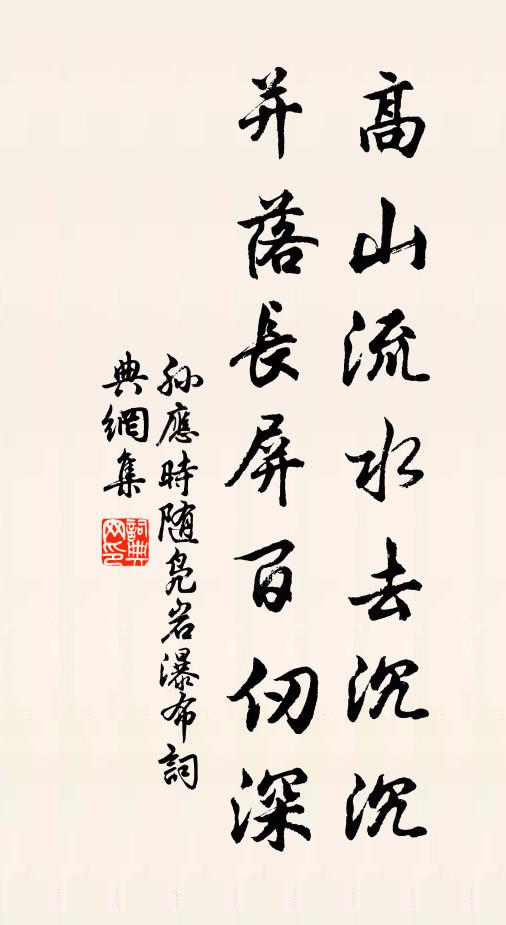 高山流水去沉沉
并落長屏百仞深
孙應時随凫岩瀑布詞
典網集
詞典网印